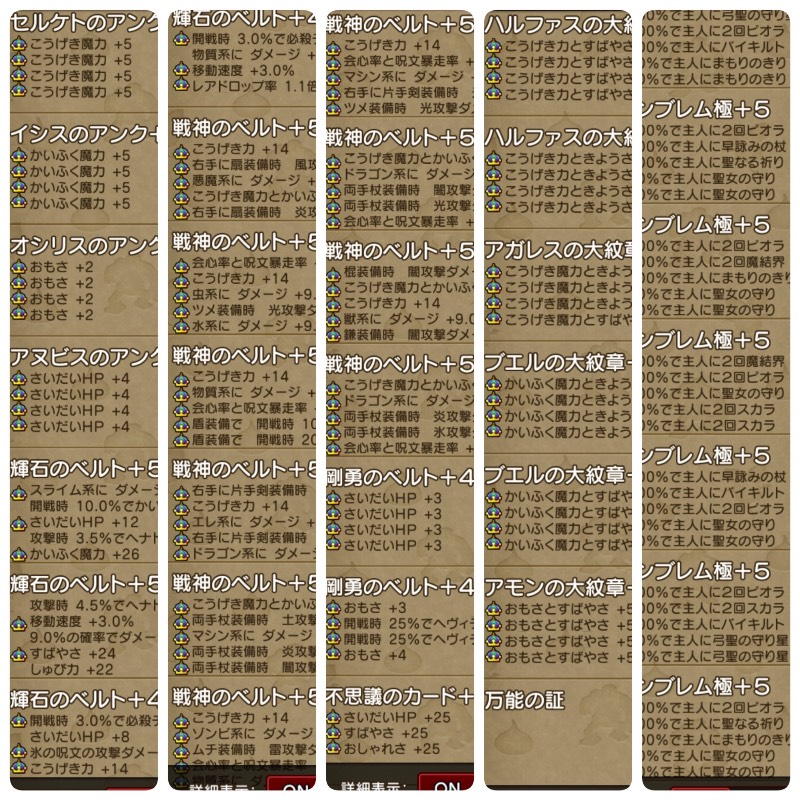 セルケトのアンク
こうげき魔力 +5
こうげき魔力 +5
こうげき魔力 +5
こうげき魔力 +5
イシスのアンク+
かいふく魔力 +5
かいふく魔力 +5
かいふく魔力 +5
かいふく魔力 +5
オシリスのアンク
おもさ +2
おもさ +2
おもさ +2
おもさ +2
アヌビスのアンク
さいだいHP +4
さいだいHP +4
さいだいHP +4
さいだいHP +4
輝石のベルト+5
スライム系に ダメー
開戦時 10.0%でかい
さいだいHP +12
攻撃時 3.5%でヘナト
かいふく魔力 +26
輝石のベルト+5
攻撃時 4.5%でヘナト
移動速度 +3.0%
9.0%の確率でダメー
すばやさ +24
しゅび力 +22
輝石のベルト+4
開戦時 3.0%で必殺
さいだいHP +8
氷の呪文の攻撃ダメー
こうげき力 +14
輝石のベルト+4
開戦時 3.0%で必殺
物質系に ダメージ +
移動速度 +3.0%
レアドロップ率 1.1倍
戦神のベルト+5
こうげき力 +14
右手に扇装備時 風攻
悪魔系に ダメージ +
こうげき魔力とかいふ
右手に扇装備時 炎攻
戦神のベルト+5
会心率と呪文暴走率
こうげき力 +14
虫系に ダメージ +9.
ツメ装備時 光攻撃ダ
水系に ダメージ +9.
戦神のベルト+5
こうげき力 +14
物質系に ダメージ +
会心率と呪文暴走率
盾装備で 開戦時 10
盾装備で 開戦時 20
戦神のベルト+5
右手に片手剣装備時
こうげき力 +14
エレ系に ダメージ +
右手に片手剣装備時
ドラゴン系に ダメージ
戦神のベルト+5
こうげき魔力とかいふ
両手杖装備時 土攻撃
マシン系に ダメージ
両手杖装備時 炎攻撃
両手杖装備時 闇攻撃
戦神のベルト+5
こうげき力 +14
ゾンビ系に ダメージ
ムチ装備時 雷攻撃ダ
会心率と呪文暴走率
物質系に ダメージ
詳細表示: ON
戦神のベルト+5
こうげき力 +14
会心率と呪文暴走率 +
マシン系に ダメージ
右手に片手剣装備時
ツメ装備時 光攻撃ダ
戦神のベルト+5
こうげき魔力とかいふ
ドラゴン系に ダメージ
両手杖装備時 闇攻撃
両手杖装備時 光攻撃
会心率と呪文暴走率 +
戦神のベルト+5
棍装備時 闇攻撃ダメー
こうげき魔力とかいふ
こうげき力 +14
獣系に ダメージ +9.0
鎌装備時 闇攻撃ダメー
戦神のベルト+5
こうげき魔力とかいふ
ドラゴン系に ダメージ
両手杖装備時 炎攻撃
両手杖装備時 氷攻撃
会心率と呪文暴走率 +
剛勇のベルト+4
さいだいHP +3
さいだいHP +3
さいだいHP +3
さいだいHP +3
剛勇のベルト+4
おもさ +3
開戦時 25%でヘヴィ
開戦時 25%でヘヴィ
おもさ +4
不思議のカード+
さいだいHP +25
すばやさ +25
おしゃれさ +25
詳細表示: ON
ハルファスの大紋
こうげき力とすばやさ
こうげき力とすばやさ
こうげき力とすばやさ
こうげき力とすばやさ
ハルファスの大紋
こうげき力ときようさ
こうげき力ときようさ
こうげき力ときようさ
こうげき力ときようさ
アガレスの大紋章
こうげき魔力ときよう
こうげき魔力ときよう
こうげき魔力ときよう
こうげき魔力とすばや
ブエルの大紋章+
かいふく魔力ときよう
かいふく魔力ときよう
かいふく魔力ときよう
かいふく魔力ときよう
ブエルの大紋章+
かいふく魔力とすばや
かいふく魔力とすばや
かいふく魔力とすばや
かいふく魔力とすばや
アモンの大紋章+
おもさとすばやさ +5
おもさとすばやさ +5
おもさとすばやさ +5
おもさとすばやさ +5
万能の証
0%で主人に弓聖の守り星
00%で主人に2回ピオラ
00%で主人にバイキルト
0%で主人にまもりのきり
0%で主人にまもりのきり
ンブレム極+5
00%で主人に2回ピオラ
00%で主人に早詠みの杖
00%で主人に聖なる祈り
0%で主人に聖女の守り
0%で主人に聖女の守り
ンブレム極+5
00%で主人に2回ピオラ
00%で主人に2回魔結界
00%で主人にまもりのきり
0%で主人に聖女の守り
0%で主人に聖女の守り
ンブレム極+5
00%で主人に2回魔結界
00%で主人に2回ピオラ
00%で主人に聖女の守り
0%で主人に2回スカラ
0%で主人に2回スカラ
ンブレム極+5
00%で主人に早詠みの杖
00%で主人にバイキルト
00%で主人に2回ピオラ
0%で主人に聖女の守り
0%で主人に聖女の守り
ンブレム極+5
00%で主人に2回ピオラ
00%で主人に2回スカラ
00%で主人にバイキルト
0%で主人に弓聖の守り星
0%で主人に弓聖の守り星
ンブレム極+5
00%で主人に2回ピオラ
00%で主人に聖なる祈り
00%で主人にまもりのきり
0%で主人に聖女の守り
0%で主人に聖女の守り